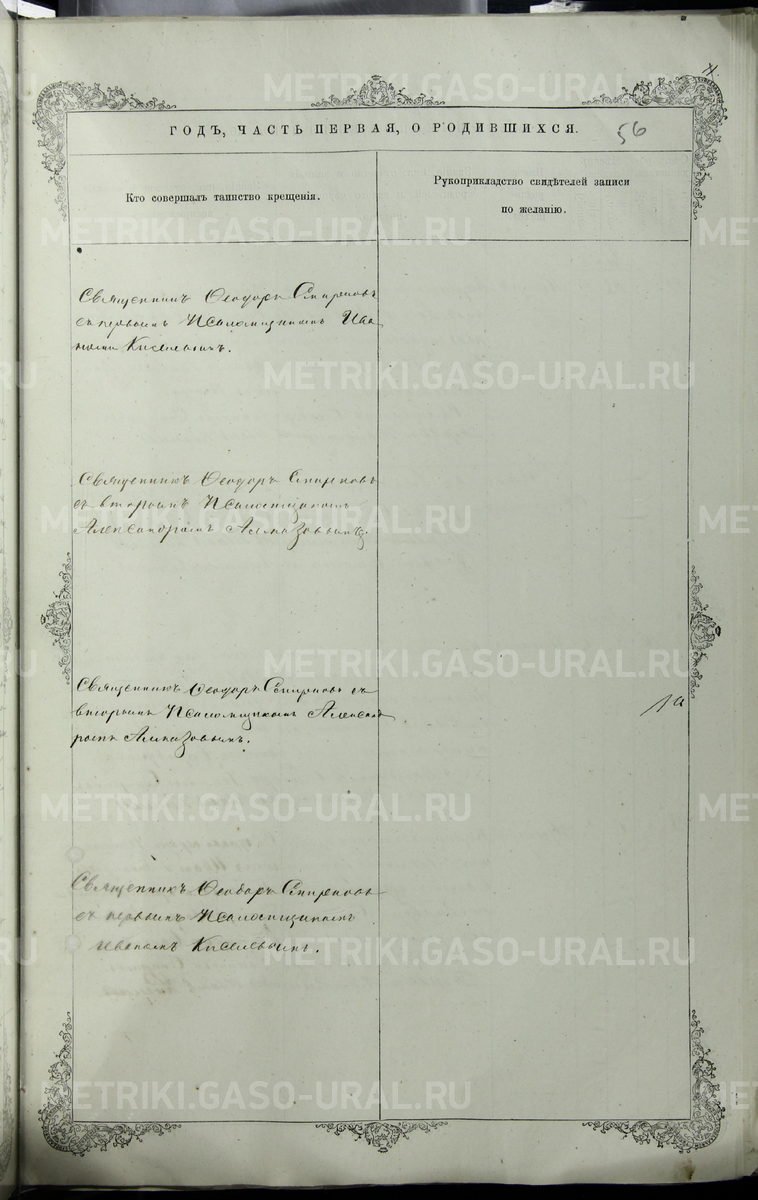 ГОДЪ, ЧАСТЬ ПЕРВАЯ, О РОДИВШИХСЯ.
56
Кто совершалъ таинство крещенія.
Рукоприкладство свидѣтелей записи
по желанію.
Священникъ Ѳеодоръ Смирновъ
съ первымъ Псаломщикомъ Ива
номъ Киселевымъ.
Священникъ Ѳеодоръ Смирновъ
съ вторымъ Псаломщикомъ
Александромъ Алмазовымъ.
Священникъ Ѳеодоръ Смирновъ съ
вторымъ Псаломщикомъ Александ
ромъ Алмазовымъ.
Священникъ Ѳеодоръ Смирновъ
съ первымъ Псаломщикомъ
Иваномъ Киселевымъ.
METRIKI.GASO-URAL.RU